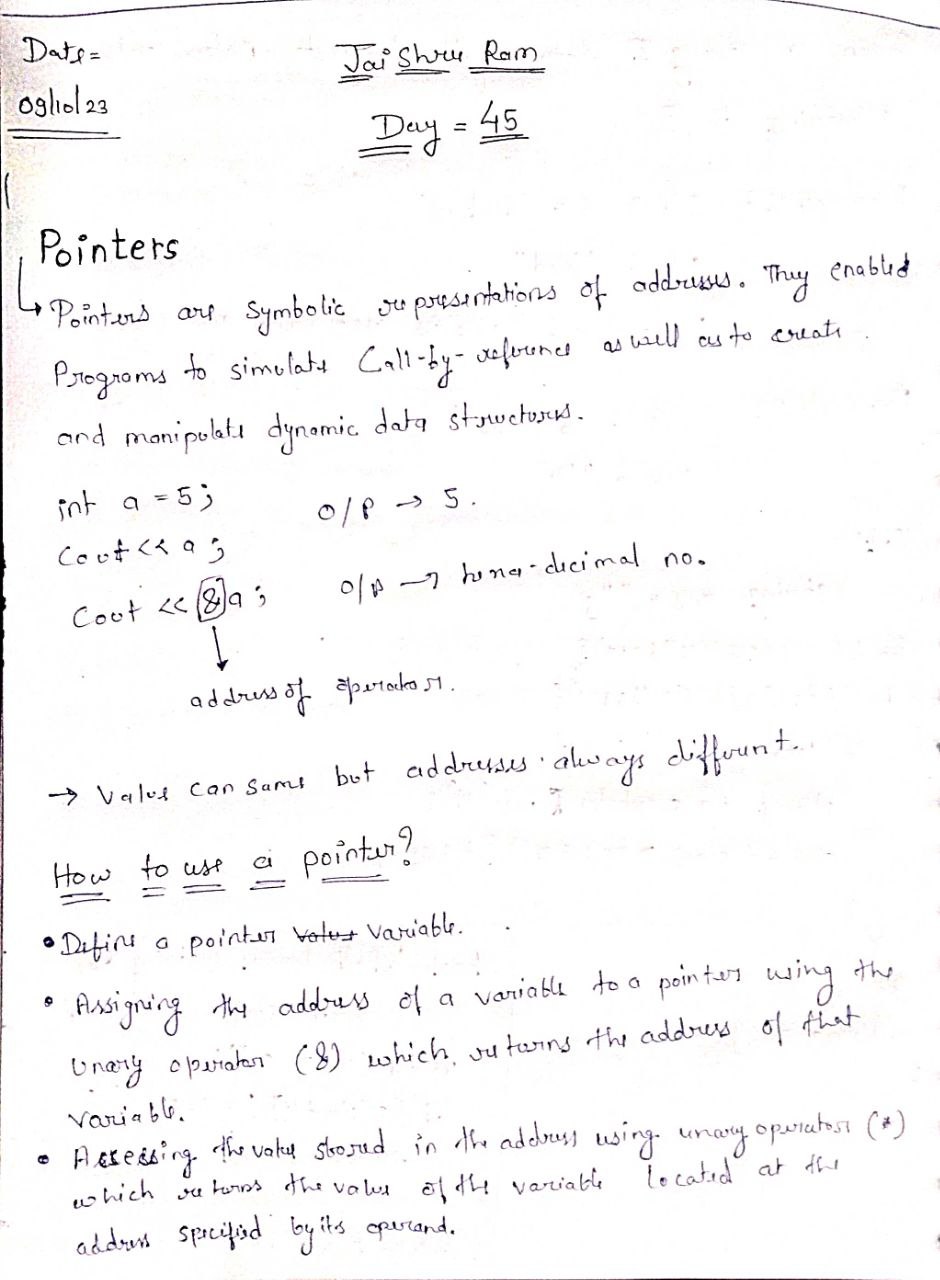 Date =
Jai Shree Ram
09/10/23
Day = 45
Pointers
↳ Pointers are Symbolic representations of addresses. They enabled
Programs to simulate Call-by-reference as well as to create
and manipulate dynamic data structures.
int a = 5;
O/P → 5.
Cout << a;
Cout << &a;
O/P → hexa-decimal no.
address of operator.
→ Value can same but addresses always different.
How to use a pointer?
• Define a pointer Value Variable.
• Assigning the address of a variable to a pointer using the
Unary operator (&) which returns the address of that
variable.
• Assessing the value stored in the address using unary operator (*)
which returns the value of the variable located at the
address specified by its operand.